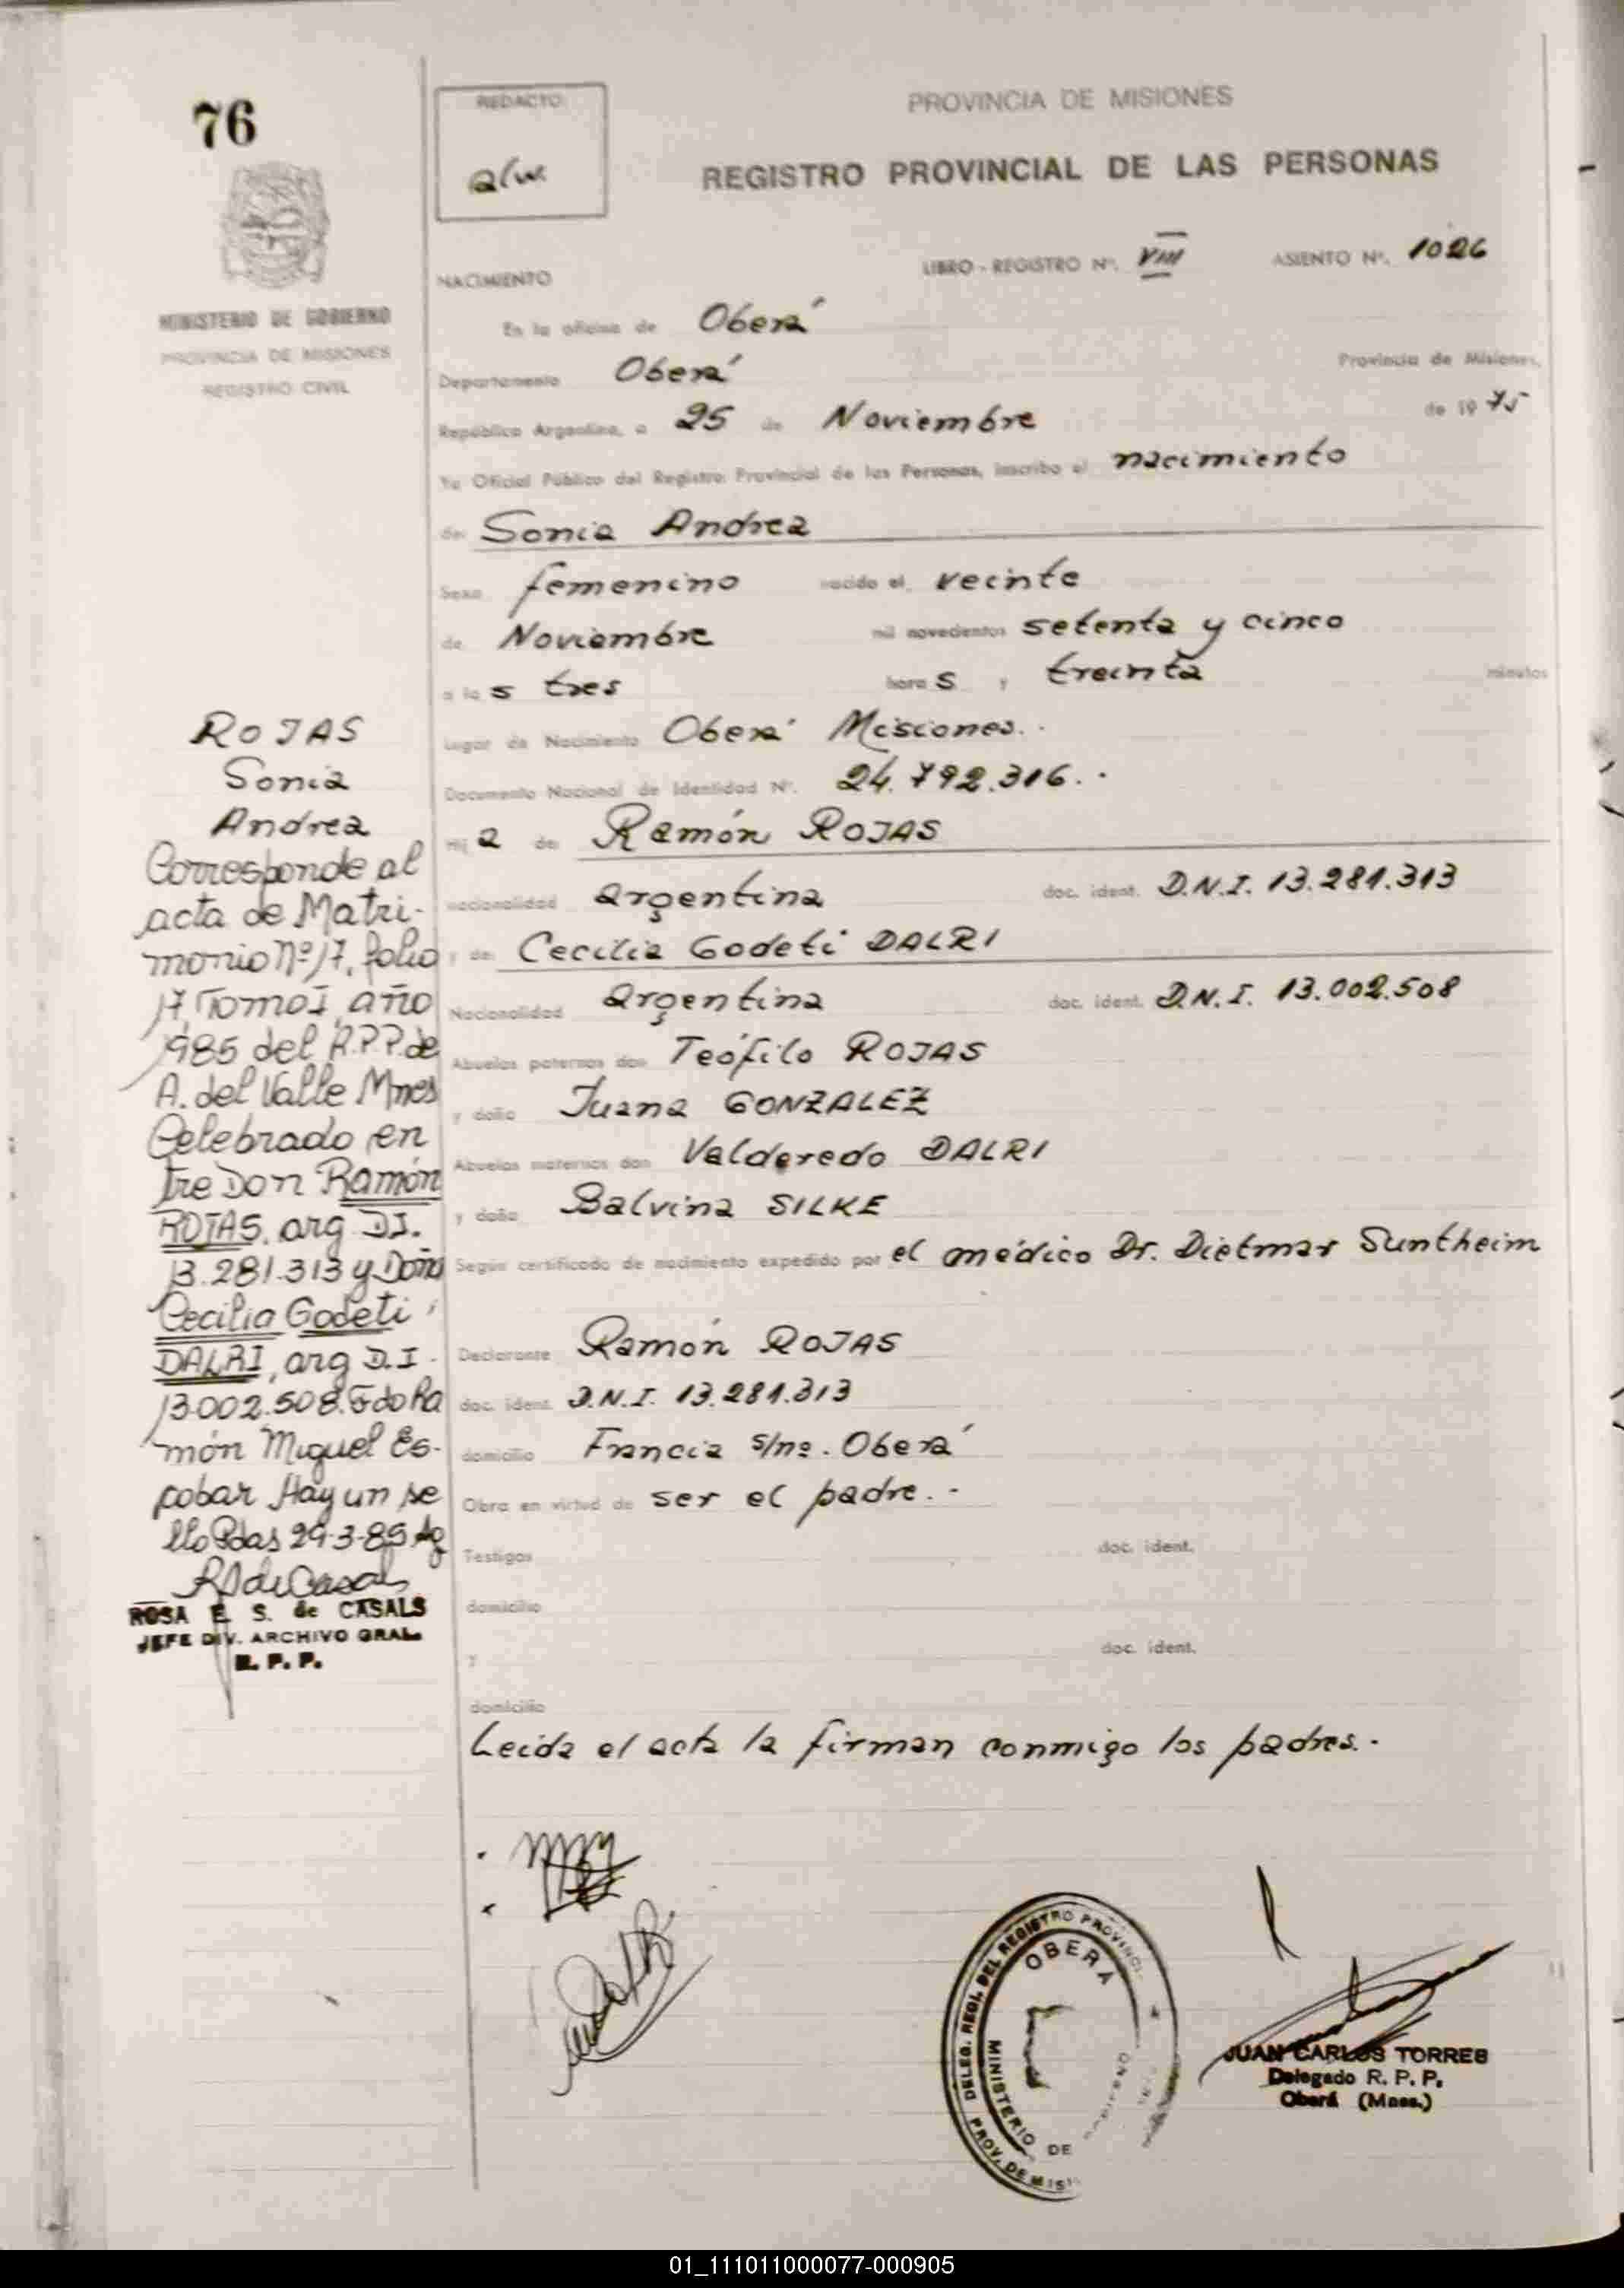 76
REDACTO
PROVINCIA DE MISIONES
REGISTRO PROVINCIAL DE LAS PERSONAS
LIBRO - REGISTRO Nº. VIII ASIENTO Nº. 1026
NACIMIENTO
MINISTERIO DE GOBIERNO
PROVINCIA DE MISIONES
REGISTRO CIVIL
En la oficina de Oberá
Departamento Oberá Provincia de Misiones,
República Argentina, a 25 de Noviembre de 19 75
Yo Oficial Público del Registro Provincial de las Personas, inscribo el nacimiento
de: Sonia Andrea
Sexo femenino nacido el, veinte
de Noviembre mil novecientos setenta y cinco
a la s tres hora s y treinta minutos
Lugar de Nacimiento Oberá Misiones.
Documento Nacional de Identidad Nº. 24.792.316.
Hij a de: Ramón ROJAS
nacionalidad argentina doc. ident. D.N.I. 13.281.313
y de: Cecilia Godeti DALRI
Nacionalidad argentina doc. ident. D.N.I. 13.002.508
Abuelos paternos don Teófilo ROJAS
y doña Juana GONZALEZ
Abuelos maternos don Valderedo DALRI
y doña Balvina SILKE
Según certificado de nacimiento expedido por el médico Dr. Dietmar Suntheim
Declarante Ramón ROJAS
doc. ident. D.N.I. 13.281.313
domicilio Francia s/nº. Oberá
Obra en virtud de ser el padre. -
Testigos doc. ident.
domicilio
y doc. ident.
domicilio
Leida el acta la firman conmigo los padres. -
ROJAS
Sonia
Andrea
Corresponde al
acta de Matri-
monio Nº 17, folio
17 Tomo I, año
1985 del R.P.P. de
A. del Valle Mnes
Celebrado en
tre Don Ramón
ROJAS, arg D.I.
13.281.313 y Doña
Cecilia Godeti
DALRI, arg D.I.
13.002.508. Fdo Ra
món Miguel Es-
cobar Hay un se
llo Pdas 29-3-85
ROSA E. S. de CASALS
JEFE DIV. ARCHIVO GRAL.
R. P. P.
DELEG. REGL. DEL REGISTRO PROVINCI
OBERA
MINISTERIO DE
PROV. DE MIS
JUAN CARLOS TORRES
Delegado R. P. P.
Oberá (Mnes.)
01_111011000077-000905